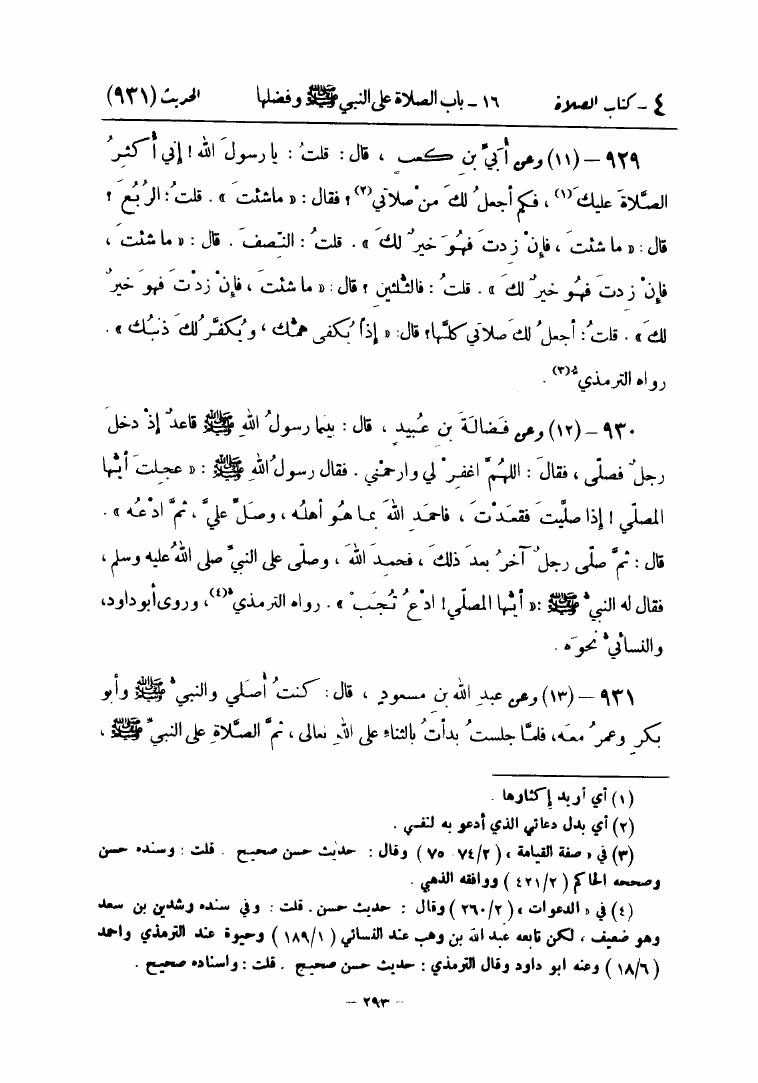 ٤ - كتاب الصلاة ١٦ - باب الصلاة على النبي ﷺ وفضلها الحديث (٩٣١)
٩٢٩ - (١١) وعن أُبَيِّ بنِ كعبٍ ، قال : قلتُ : يا رسولَ الله ! إني أُكثِرُ
الصَّلاةَ عليكَ(١) ، فكم أجعلُ لكَ منْ صلاتي(٢) ؟ فقال : « ماشئتَ » . قلتُ : الرُّبُعَ ؟
قال : « ما شئتَ ، فإنْ زدتَ فهُوَ خيرٌ لكَ » . قلتُ : النّصفَ . قال : « ما شئتَ ،
فإنْ زدتَ فهُو خيرٌ لكَ » . قلتُ : فالثّلثينِ ؟ قال : « ما شئتَ ، فإنْ زدْتَ فهوَ خيرٌ
لكَ » . قلتُ : أجعلُ لكَ صلاتي كلَّها ؟ قال : « إذاً يُكفى همُّك ، ويُكفَّرُ لكَ ذنبُك » .
رواه الترمذيُّ(٣) .
٩٣٠ - (١٢) وعن فَضالَةَ بنِ عُبيدٍ ، قال : بينما رسولُ اللهِ ﷺ قاعدٌ إذْ دخلَ
رجلٌ فصلّى ، فقالَ : اللهُمَّ اغفِرْ لي وارحمْني . فقال رسولُ اللهِ ﷺ : « عجِلتَ أيُّها
المصلّي ! إذا صلَّيتَ فقعَدْتَ ، فاحمَدِ اللهَ بما هُو أهلُه ، وصَلِّ عليَّ ، ثمَّ ادْعُه » .
قال : ثمَّ صلّى رجلٌ آخرُ بعدَ ذلكَ ، فحمِدَ اللهَ ، وصلّى على النبيِّ صلى اللهُ عليه وسلم ،
فقال له النبيُّ ﷺ : « أيُّها المصلّي ! ادْعُ تُجَبْ » . رواه الترمذيُّ(٤)، وروى أبو داود،
والنسائيُّ نحوَه .
٩٣١ - (١٣) وعن عبدِ اللهِ بنِ مسعودٍ ، قال : كنتُ أُصَلي والنبيُّ ﷺ وأبو
بكرٍ وعمرُ معَه، فلمَّا جلستُ بدأتُ بالثناءِ على اللهِ تعالى ، ثمَّ الصَّلاةِ على النبيِّ ﷺ ،
(١) أي أريد إكثارها .
(٢) أي بدل دعائي الذي أدعو به لنفسي .
(٣) في « صفة القيامة » ( ٢/ ٧٤ ٧٥ ) وقال : حديث حسن صحيح . قلت : وسنده حسن
وصححه الحاكم ( ٢/ ٤٢١ ) ووافقه الذهبي .
(٤) في « الدعوات » ( ٢/ ٢٦٠ ) وقال : حديث حسن. قلت : وفي سنده رشدين بن سعد
وهو ضعيف ، لكن تابعه عبد الله بن وهب عند النسائي ( ١/ ١٨٩ ) وحيوة عند الترمذي واحمد
( ٦/ ١٨ ) وعنه ابو داود وقال الترمذي : حديث حسن صحيح . قلت : واسناده صحيح .
- ٢٩٣ -